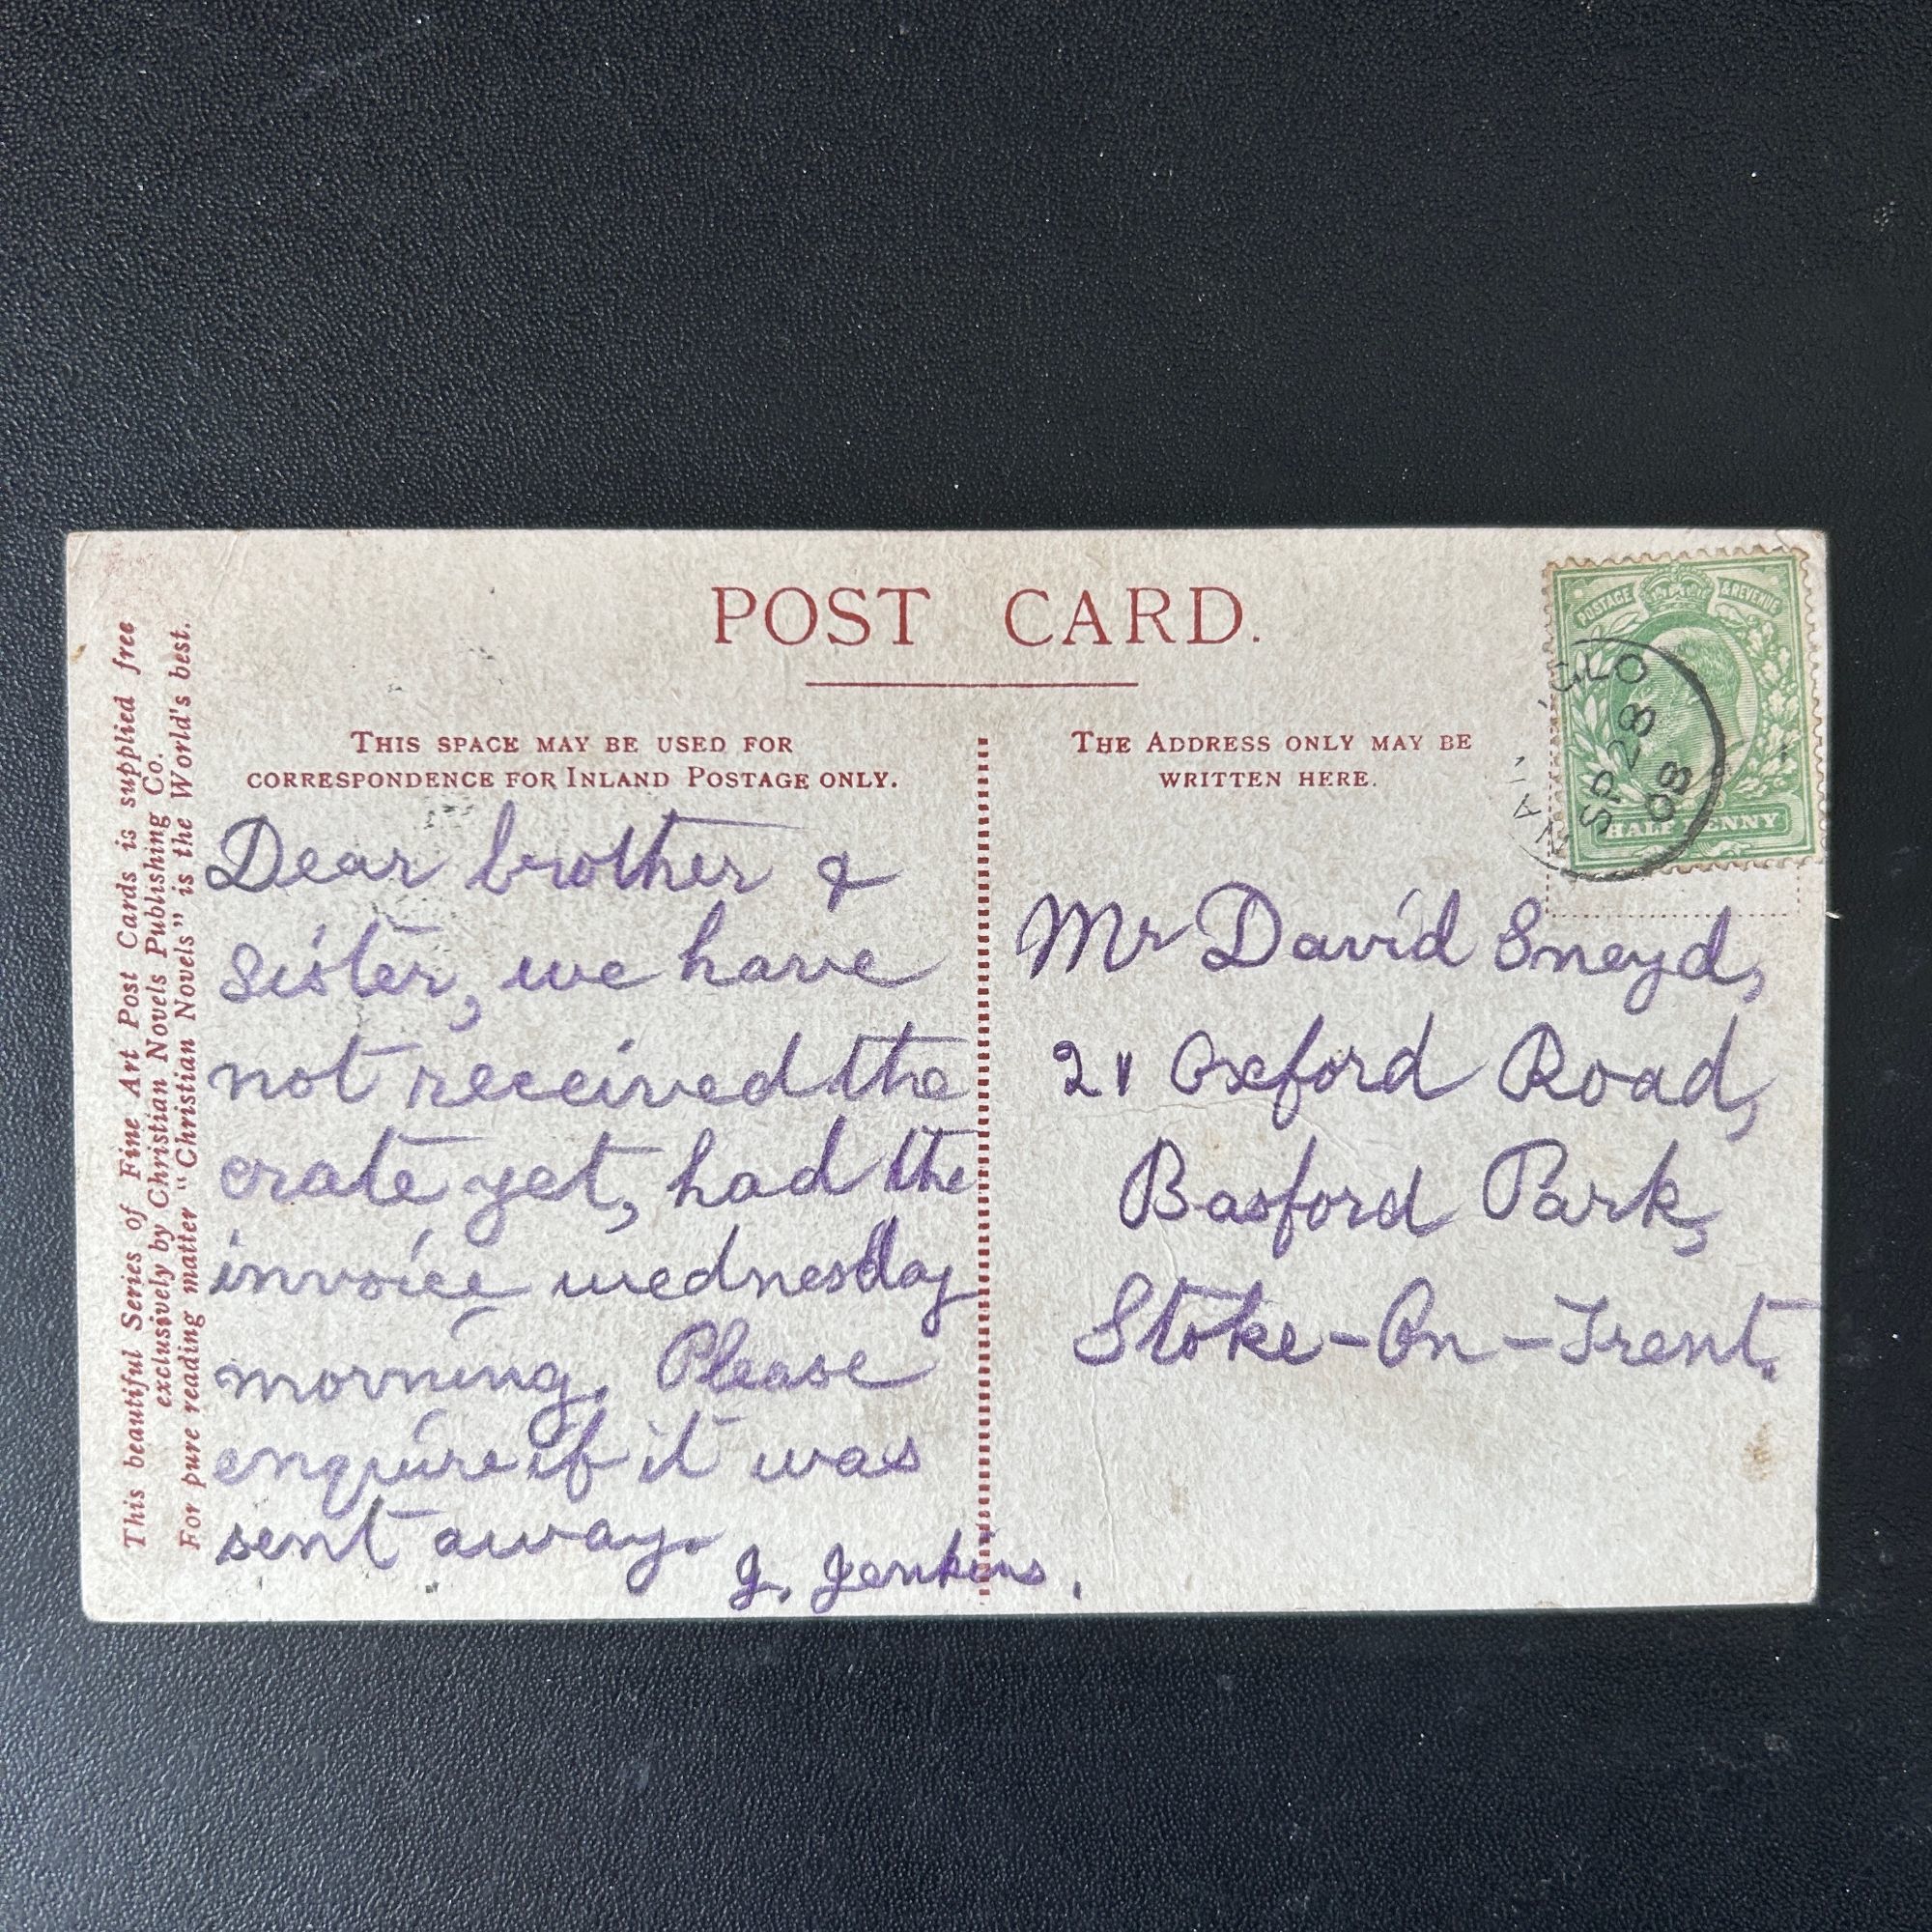 POST CARD.
This beautiful Series of Fine Art Post Cards is supplied free
exclusively by Christian Novels Publishing Co.
For pure reading matter "Christian Novels" is the World's best.
THIS SPACE MAY BE USED FOR
CORRESPONDENCE FOR INLAND POSTAGE ONLY.
Dear brother &
sister, we have
not received the
crate yet, had the
invoice wednesday
morning. Please
enquire if it was
sent away.
J. Jenkins.
THE ADDRESS ONLY MAY BE
WRITTEN HERE.
Mr David Sneyd,
21 Oxford Road,
Basford Park,
Stoke-On-Trent.
POSTAGE & REVENUE
HALFPENNY
SP 23
08